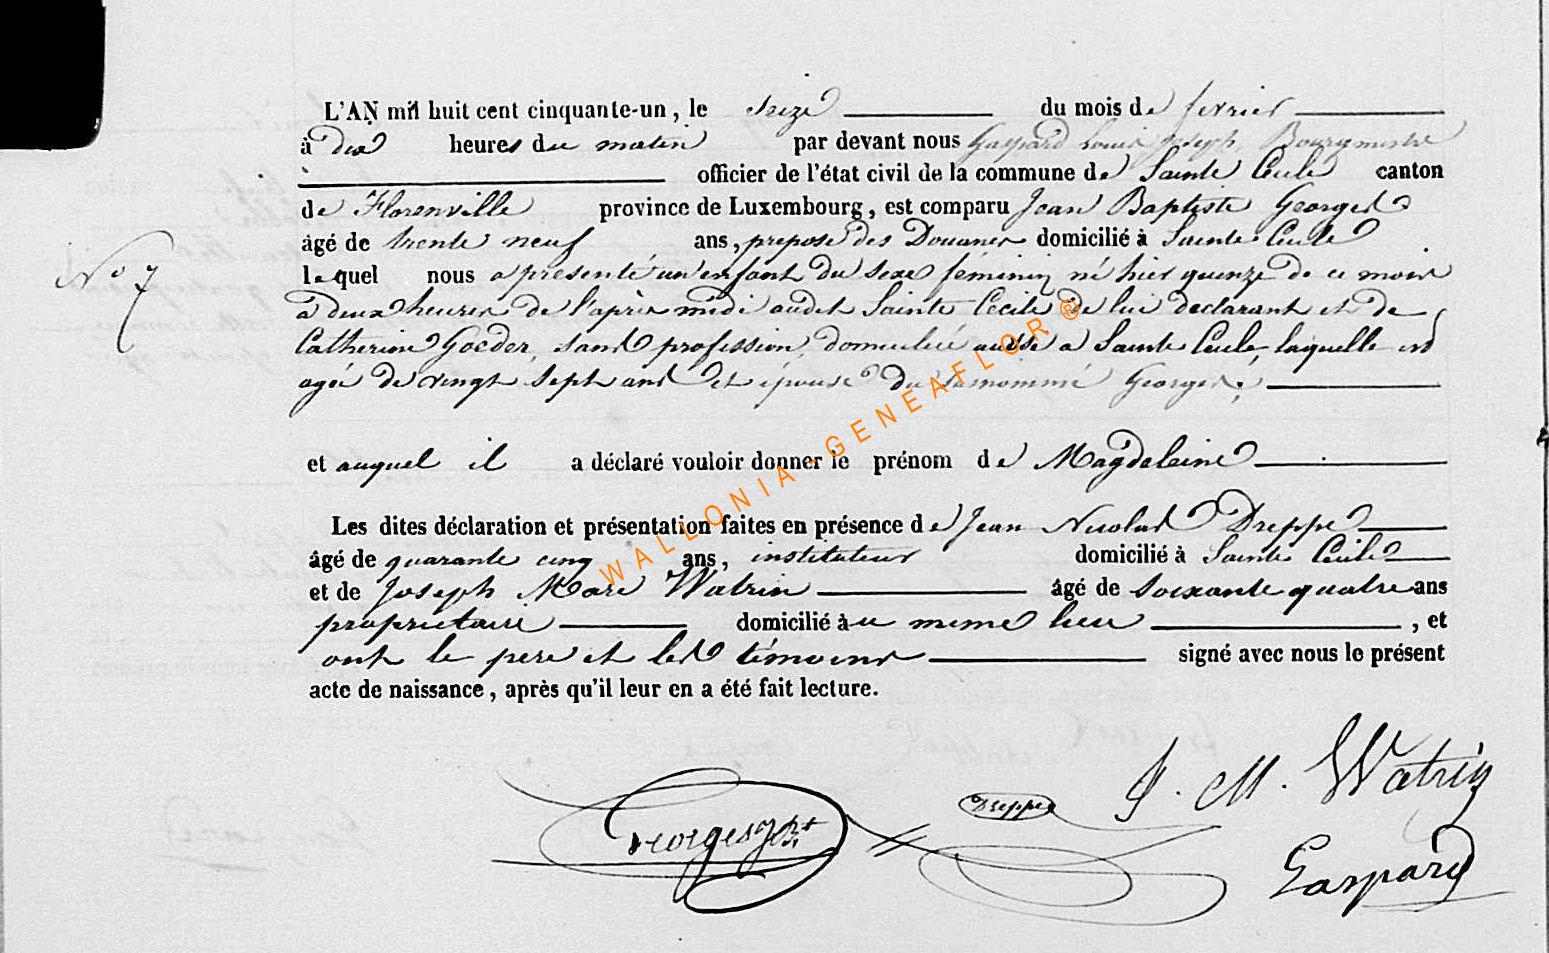 L'AN mil huit cent cinquante-un, le seize du mois de fevrier
à dix heures du matin par devant nous Gaspard Louis Joseph, Bourgmestre
officier de l'état civil de la commune de Sainte Cecile canton
de Florenville province de Luxembourg, est comparu Jean Baptiste Georges
âgé de trente neuf ans, preposé des Douanes domicilié à Sainte Cecile
N° 7
lequel nous a presenté un enfant du sexe féminin né hier quinze de ce mois
à deux heures de l'après midi audit Sainte Cecile de lui declarant et de
Catherine Goeder, sans profession, domiciliée aussi a Sainte Cecile, laquelle est
agée de vingt sept ans et épouse du Georges;
et auquel il a déclaré vouloir donner le prénom de Magdeleine
Les dites déclaration et présentation faites en présence de Jean Nicolas Dreppe
âgé de quarante cinq ans, instituteur domicilié à Sainte Cecile
et de Joseph Marc Watrin âgé de soixante quatre ans
propriétaire domicilié au meme lieu, et
ont le pere et les témoins signé avec nous le présent
acte de naissance, après qu'il leur en a été fait lecture.
J. M. Watrin
Dreppe
Georges J Bt
Gaspard
WALLONIA - GENEAFLOR ®